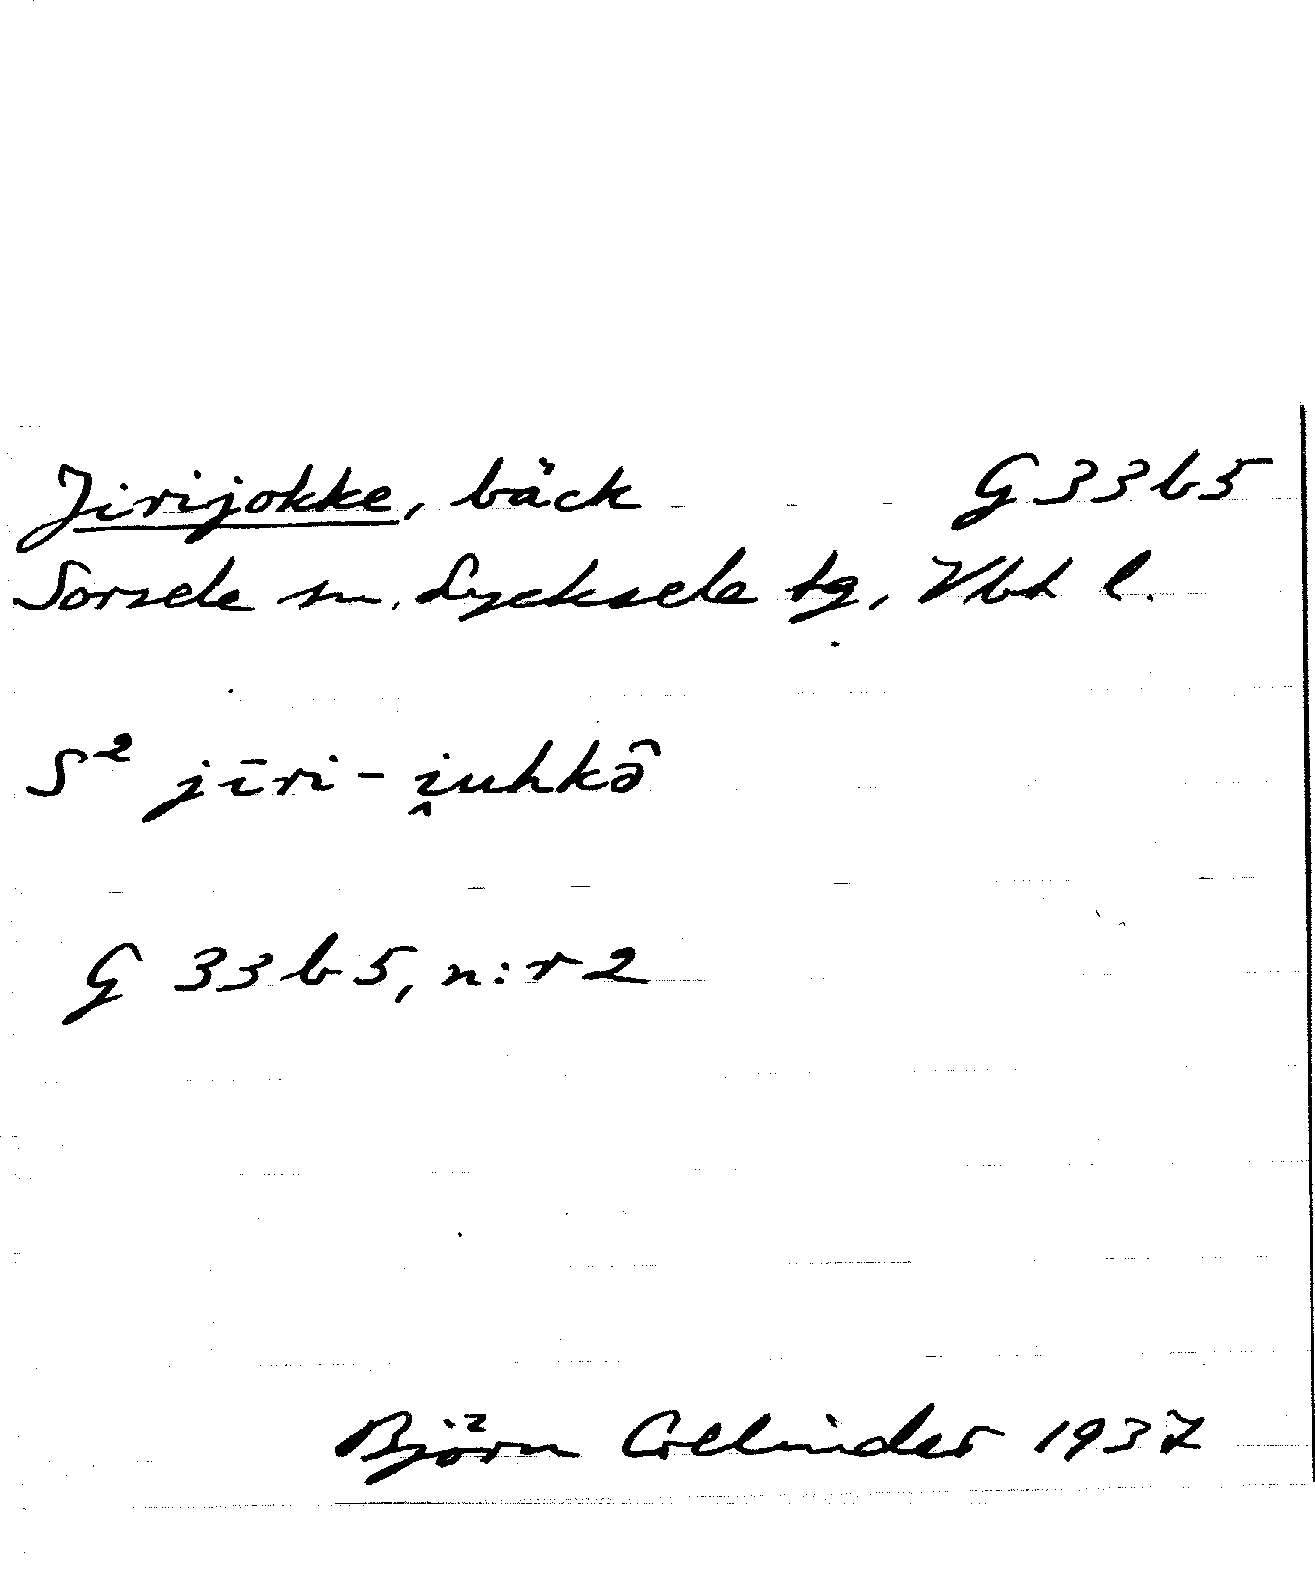 Jirijokke, bäck G33b5
Sorsele sn. Lycksele tg, Vbt l.
S² jīri-i̯uhkə̂
G 33b5, n:r 2
Björn Collinder 1937